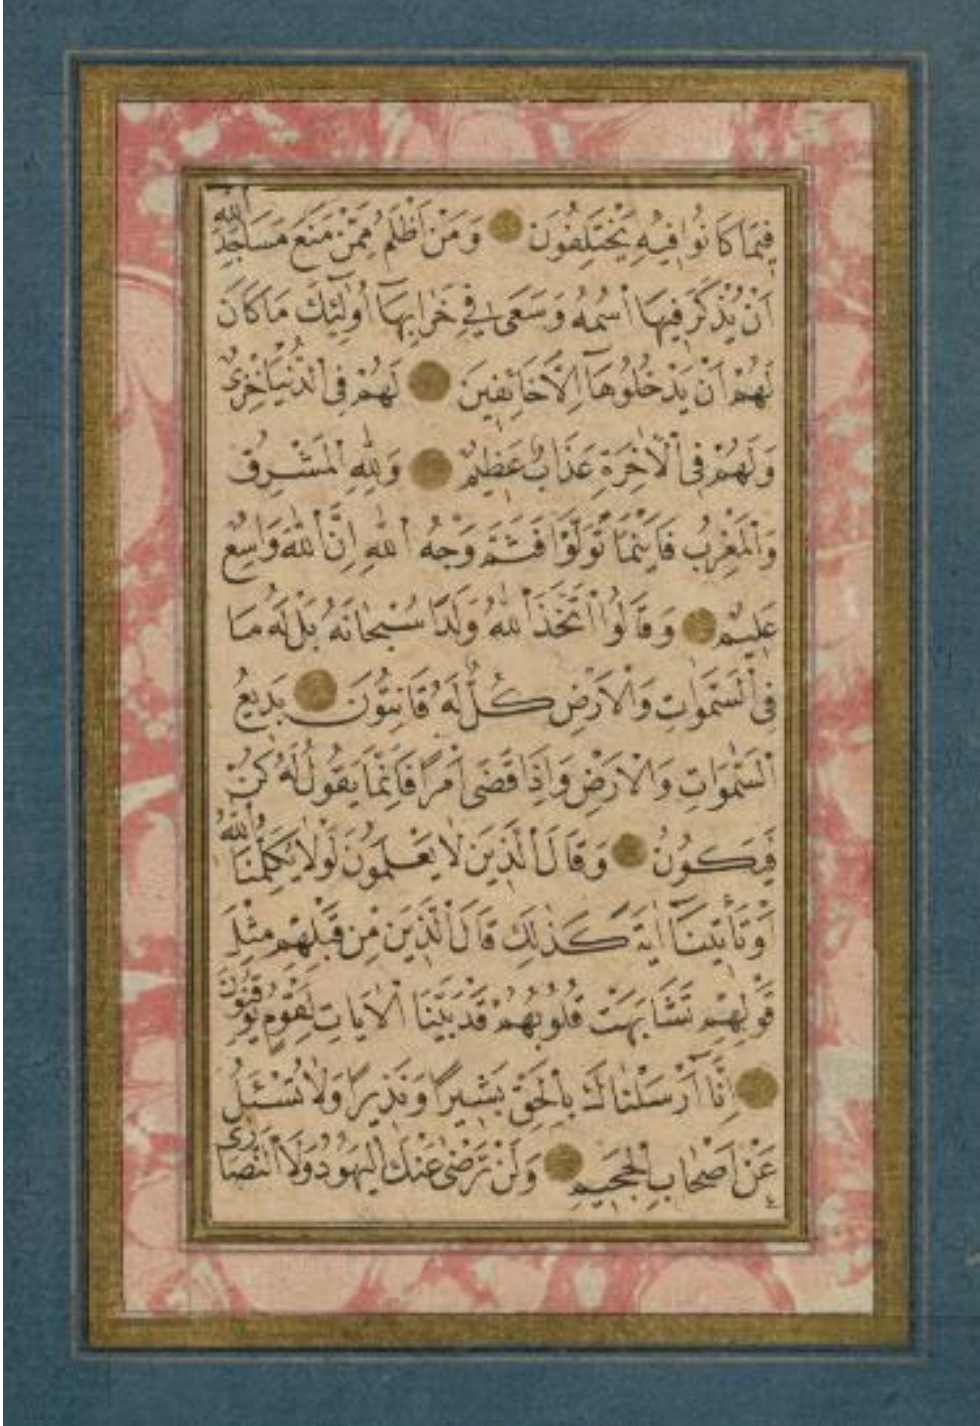 فِيمَا كَانُوا فِيهِ يَخْتَلِفُونَ وَمَنْ اَظْلَمُ مِمَّنْ مَنَعَ مَسَاجِدَ اللّٰهِ
اَنْ يُذْكَرَ فِيهَا اسْمُهُ وَسَعٰى فِي خَرَابِهَآ اُولٰٓئِكَ مَا كَانَ
لَهُمْ اَنْ يَدْخُلُوهَآ اِلَّا خَآئِفِينَ لَهُمْ فِي الدُّنْيَا خِزْيٌ
وَلَهُمْ فِي الْاٰخِرَةِ عَذَابٌ عَظِيمٌ وَلِلّٰهِ الْمَشْرِقُ
وَالْمَغْرِبُ فَاَيْنَمَا تُوَلُّوْا فَثَمَّ وَجْهُ اللّٰهِ اِنَّ اللّٰهَ وَاسِعٌ
عَلِيمٌ وَقَالُوا اتَّخَذَ اللّٰهُ وَلَدًا سُبْحَانَهُ بَلْ لَهُ مَا
فِي السَّمٰوَاتِ وَالْاَرْضِ كُلٌّ لَهُ قَانِتُونَ بَدِيعُ
السَّمٰوَاتِ وَالْاَرْضِ وَاِذَا قَضٰى اَمْرًا فَاِنَّمَا يَقُولُ لَهُ كُنْ
فَيَكُونُ وَقَالَ الَّذِينَ لَا يَعْلَمُونَ لَوْلَا يُكَلِّمُنَا اللّٰهُ
اَوْ تَأْتِينَآ اٰيَةٌ كَذٰلِكَ قَالَ الَّذِينَ مِنْ قَبْلِهِمْ مِثْلَ
قَوْلِهِمْ تَشَابَهَتْ قُلُوبُهُمْ قَدْ بَيَّنَّا الْاٰيَاتِ لِقَوْمٍ يُوقِنُونَ
اِنَّآ اَرْسَلْنَاكَ بِالْحَقِّ بَشِيرًا وَنَذِيرًا وَلَا تُسْئَلُ
عَنْ اَصْحَابِ الْجَحِيمِ وَلَنْ تَرْضٰى عَنْكَ الْيَهُودُ وَلَا النَّصَارٰى